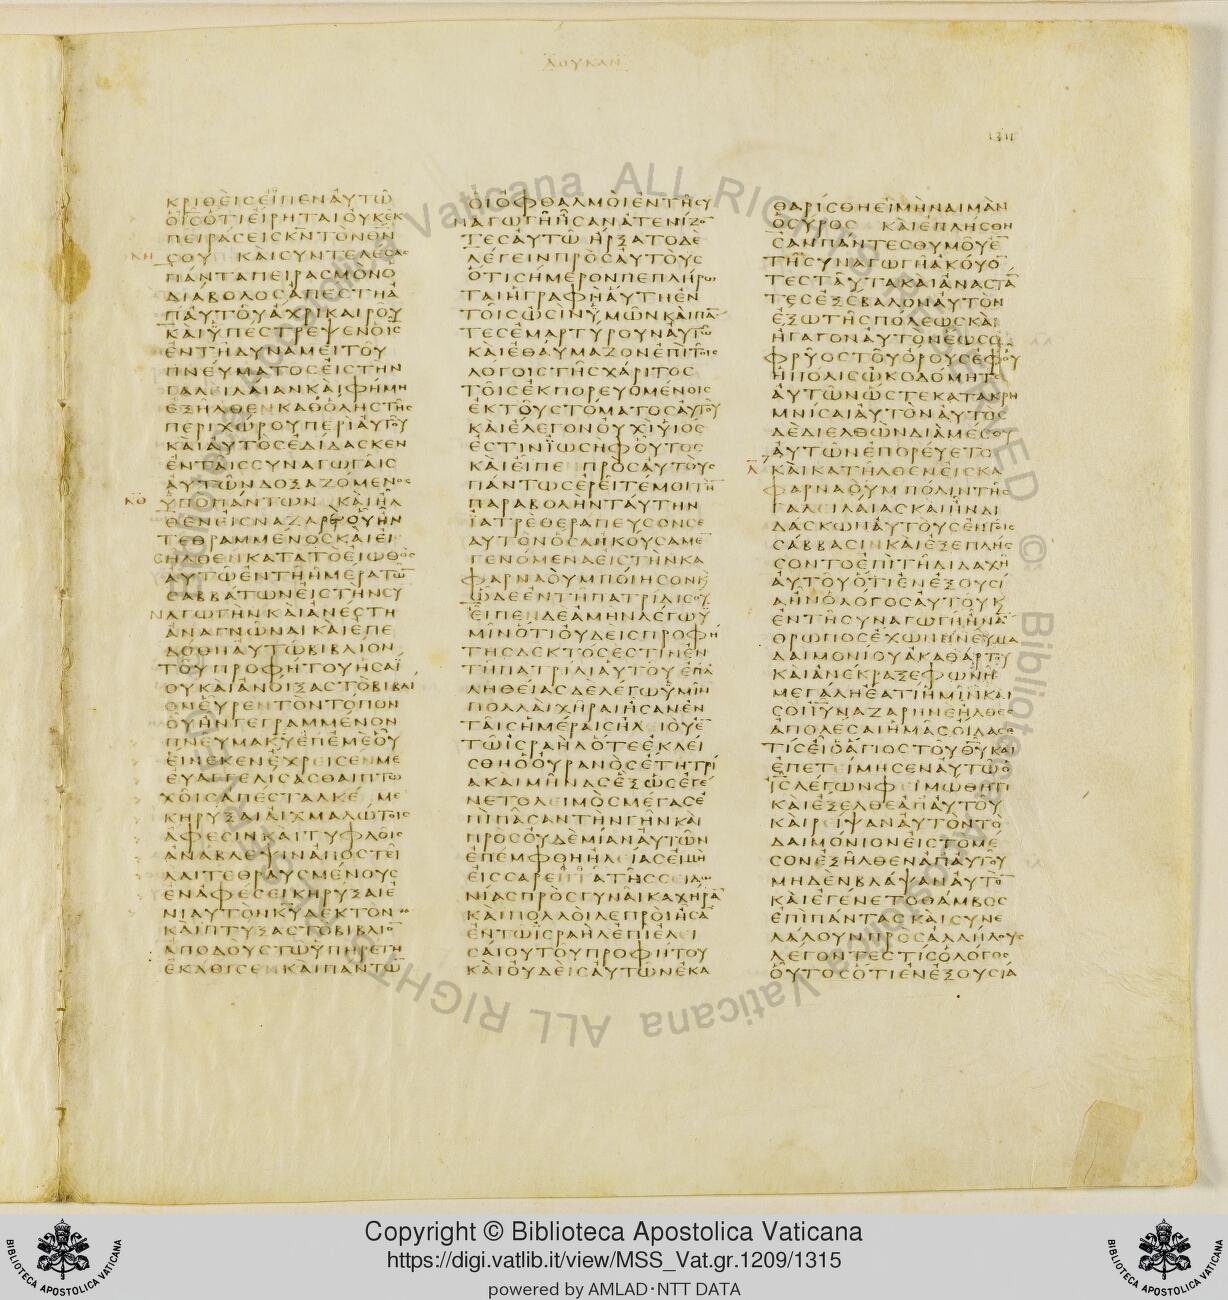 ΛΟΥΚΑΝ
ΚΡΙΘΕΙϹΕΙΠΕΝΑΥΤΩ
ΟΙϹΟΤΙΕΙΡΗΤΑΙΟΥΚΕΚ
ΠΕΙΡΑϹΕΙϹΚ̅Ν̅ΤΟΝΘ̅Ν̅
ϹΟΥ ΚΑΙϹΥΝΤΕΛΕϹΑϹ
ΠΑΝΤΑΠΕΙΡΑϹΜΟΝΟ
ΔΙΑΒΟΛΟϹΑΠΕϹΤΗΑ
ΠΑΥΤΟΥΑΧΡΙΚΑΙΡΟΥ
ΚΑΙΥΠΕϹΤΡΕΨΕΝΟΙϹ
ΕΝΤΗΔΥΝΑΜΕΙΤΟΥ
ΠΝΕΥΜΑΤΟϹΕΙϹΤΗΝ
ΓΑΛΕΙΛΑΙΑΝΚΑΙΦΗΜΗ
ΕΞΗΛΘΕΝΚΑΘΟΛΗϹΤΗϹ
ΠΕΡΙΧΩΡΟΥΠΕΡΙΑΥΤΟΥ
ΚΑΙΑΥΤΟϹΕΔΙΔΑϹΚΕΝ
ΕΝΤΑΙϹϹΥΝΑΓΩΓΑΙϹ
ΑΥΤΩΝΔΟΞΑΖΟΜΕΝΟϹ
ΥΠΟΠΑΝΤΩΝ ΚΑΙΗΛ
ΘΕΝΕΙϹΝΑΖΑΡΕΤΟΥΗΝ
ΤΕΘΡΑΜΜΕΝΟϹΚΑΙΕΙ
ϹΗΛΘΕΝΚΑΤΑΤΟΕΙΩΘΟϹ
ΑΥΤΩΕΝΤΗΗΜΕΡΑΤΩ̅
ϹΑΒΒΑΤΩΝΕΙϹΤΗΝϹΥ
ΝΑΓΩΓΗΝΚΑΙΑΝΕϹΤΗ
ΑΝΑΓΝΩΝΑΙΚΑΙΕΠΕ
ΔΟΘΗΑΥΤΩΒΙΒΛΙΟΝ
ΤΟΥΠΡΟΦΗΤΟΥΗϹΑΪ
ΟΥΚΑΙΑΝΟΙΞΑϹΤΟΒΙΒΛΙ
ΟΝΕΥΡΕΝΤΟΝΤΟΠΟΝ
ΟΥΗΝΓΕΓΡΑΜΜΕΝΟΝ
ΠΝΕΥΜΑΚ̅Υ̅ΕΠΕΜΕΟΥ
ΕΙΝΕΚΕΝΕΧΡΕΙϹΕΝΜΕ
ΕΥΑΓΓΕΛΙϹΑϹΘΑΙΠΤΩ
ΧΟΙϹΑΠΕϹΤΑΛΚΕΝΜΕ
ΚΗΡΥΞΑΙΑΙΧΜΑΛΩΤΟΙϹ
ΑΦΕϹΙΝΚΑΙΤΥΦΛΟΙϹ
ΑΝΑΒΛΕΨΙΝΑΠΟϹΤΕΙ
ΛΑΙΤΕΘΡΑΥϹΜΕΝΟΥϹ
ΕΝΑΦΕϹΕΙΚΗΡΥΞΑΙΕ
ΝΙΑΥΤΟΝΚ̅Υ̅ΔΕΚΤΟΝ
ΚΑΙΠΤΥΞΑϹΤΟΒΙΒΛΙΟ̅
ΑΠΟΔΟΥϹΤΩΥΠΗΡΕΤΗ
ΕΚΑΘΙϹΕΝΚΑΙΠΑΝΤΩ̅
ΟΙΟΦΘΑΛΜΟΙΕΝΤΗϹΥ
ΝΑΓΩΓΗΗϹΑΝΑΤΕΝΙΖΟ̅
ΤΕϹΑΥΤΩ ΗΡΞΑΤΟΔΕ
ΛΕΓΕΙΝΠΡΟϹΑΥΤΟΥϹ
ΟΤΙϹΗΜΕΡΟΝΠΕΠΛΗΡΩ
ΤΑΙΗΓΡΑΦΗΑΥΤΗΕΝ
ΤΟΙϹΩϹΙΝΥΜΩΝΚΑΙΠΑ̅
ΤΕϹΕΜΑΡΤΥΡΟΥΝΑΥΤΩ
ΚΑΙΕΘΑΥΜΑΖΟΝΕΠΙΤΟΙϹ
ΛΟΓΟΙϹΤΗϹΧΑΡΙΤΟϹ
ΤΟΙϹΕΚΠΟΡΕΥΟΜΕΝΟΙϹ
ΕΚΤΟΥϹΤΟΜΑΤΟϹΑΥΤΟΥ
ΚΑΙΕΛΕΓΟΝΟΥΧΙΥΙΟϹ
ΕϹΤΙΝΪΩϹΗΦΟΥΤΟϹ
ΚΑΙΕΙΠΕΝΠΡΟϹΑΥΤΟΥϹ
ΠΑΝΤΩϹΕΡΕΙΤΕΜΟΙΤΗ̅
ΠΑΡΑΒΟΛΗΝΤΑΥΤΗΝ
ΪΑΤΡΕΘΕΡΑΠΕΥϹΟΝϹΕ
ΑΥΤΟΝΟϹΑΗΚΟΥϹΑΜΕ
ΓΕΝΟΜΕΝΑΕΙϹΤΗΝΚΑ
ΦΑΡΝΑΟΥΜΠΟΙΗϹΟΝΚ
ΩΔΕΕΝΤΗΠΑΤΡΙΔΙϹΟΥ
ΕΙΠΕΝΔΕΑΜΗΝΛΕΓΩΥ
ΜΙΝΟΤΙΟΥΔΕΙϹΠΡΟΦΗ
ΤΗϹΔΕΚΤΟϹΕϹΤΙΝΕΝ
ΤΗΠΑΤΡΙΔΙΑΥΤΟΥ ΕΠΑ
ΛΗΘΕΙΑϹΔΕΛΕΓΩΥΜΙΝ
ΠΟΛΛΑΙΧΗΡΑΙΗϹΑΝΕΝ
ΤΑΙϹΗΜΕΡΑΙϹΗΛΕΙΟΥΕ̅
ΤΩΙϹΡΑΗΛΟΤΕΕΚΛΕΙ
ϹΘΗΟΟΥΡΑΝΟϹΕΤΗΤΡΙ
ΑΚΑΙΜΗΝΑϹΕΞΩϹΕΓΕ
ΝΕΤΟΛΕΙΜΟϹΜΕΓΑϹΕ
ΠΙΠΑϹΑΝΤΗΝΓΗΝΚΑΙ
ΠΡΟϹΟΥΔΕΜΙΑΝΑΥΤΩΝ
ΕΠΕΜΦΘΗΗΛΕΙΑϹΕΙΜΗ
ΕΙϹϹΑΡΕΠΤΑΤΗϹϹΕΙΔΩ
ΝΙΑϹΠΡΟϹΓΥΝΑΙΚΑΧΗΡΑ̅
ΚΑΙΠΟΛΛΟΙΛΕΠΡΟΙΗϹΑ̅
ΕΝΤΩΙϹΡΑΗΛΕΠΙΕΛΕΙ
ϹΑΙΟΥΤΟΥΠΡΟΦΗΤΟΥ
ΚΑΙΟΥΔΕΙϹΑΥΤΩΝΕΚΑ
ΘΑΡΙϹΘΗΕΙΜΗΝΑΙΜΑΝ
ΟϹΥΡΟϹ ΚΑΙΕΠΛΗϹΘΗ
ϹΑΝΠΑΝΤΕϹΘΥΜΟΥΕ̅
ΤΗϹΥΝΑΓΩΓΗΑΚΟΥΟ̅
ΤΕϹΤΑΥΤΑΚΑΙΑΝΑϹΤΑ̅
ΤΕϹΕΞΕΒΑΛΟΝΑΥΤΟΝ
ΕΞΩΤΗϹΠΟΛΕΩϹΚΑΙ
ΗΓΑΓΟΝΑΥΤΟΝΕΩϹΟ
ΦΡΥΟϹΤΟΥΟΡΟΥϹΕΦΟΥ
ΗΠΟΛΙϹΩΚΟΔΟΜΗΤΟ
ΑΥΤΩΝΩϹΤΕΚΑΤΑΚΡΗ
ΜΝΙϹΑΙΑΥΤΟΝΑΥΤΟϹ
ΔΕΔΙΕΛΘΩΝΔΙΑΜΕϹΟΥ
ΑΥΤΩΝΕΠΟΡΕΥΕΤΟ
ΚΑΙΚΑΤΗΛΘΕΝΕΙϹΚΑ
ΦΑΡΝΑΟΥΜΠΟΛΙΝΤΗϹ
ΓΑΛΕΙΛΑΙΑϹΚΑΙΗΝΔΙ
ΔΑϹΚΩΝΑΥΤΟΥϹΕΝΤΟΙϹ
ϹΑΒΒΑϹΙΝΚΑΙΕΞΕΠΛΗϹ
ϹΟΝΤΟΕΠΙΤΗΔΙΔΑΧΗ
ΑΥΤΟΥΟΤΙΕΝΕΞΟΥϹΙ
ΑΗΝΟΛΟΓΟϹΑΥΤΟΥΚ
ΕΝΤΗϹΥΝΑΓΩΓΗΗΝΑ̅
ΘΡΩΠΟϹΕΧΩΝΠΝΕΥΜΑ
ΔΑΙΜΟΝΙΟΥΑΚΑΘΑΡΤΟΥ
ΚΑΙΑΝΕΚΡΑΞΕΦΩΝΗ
ΜΕΓΑΛΗΕΑΤΙΗΜΙΝΚΑΙ
ϹΟΙΙ̅Υ̅ΝΑΖΑΡΗΝΕΗΛΘΕϹ
ΑΠΟΛΕϹΑΙΗΜΑϹΟΙΔΑϹΕ
ΤΙϹΕΙΟΑΓΙΟϹΤΟΥΘ̅Υ̅ΚΑΙ
ΕΠΕΤΕΙΜΗϹΕΝΑΥΤΩΟ
Ι̅Ϲ̅ΛΕΓΩΝΦΕΙΜΩΘΗΤΙ
ΚΑΙΕΞΕΛΘΕΑΠΑΥΤΟΥ
ΚΑΙΡΕΙΨΑΝΑΥΤΟΝΤΟ
ΔΑΙΜΟΝΙΟΝΕΙϹΤΟΜΕ
ϹΟΝΕΞΗΛΘΕΝΑΠΑΥΤΟΥ
ΜΗΔΕΝΒΛΑΨΑΝΑΥΤΟ̅
ΚΑΙΕΓΕΝΕΤΟΘΑΜΒΟϹ
ΕΠΙΠΑΝΤΑϹΚΑΙϹΥΝΕ
ΛΑΛΟΥΝΠΡΟϹΑΛΛΗΛΟΥϹ
ΛΕΓΟΝΤΕϹΤΙϹΟΛΟΓΟϹ
ΟΥΤΟϹΟΤΙΕΝΕΞΟΥϹΙΑ
Copyright © Biblioteca Apostolica Vaticana
https://digi.vatlib.it/view/MSS_Vat.gr.1209/1315
powered by AMLAD·NTT DATA